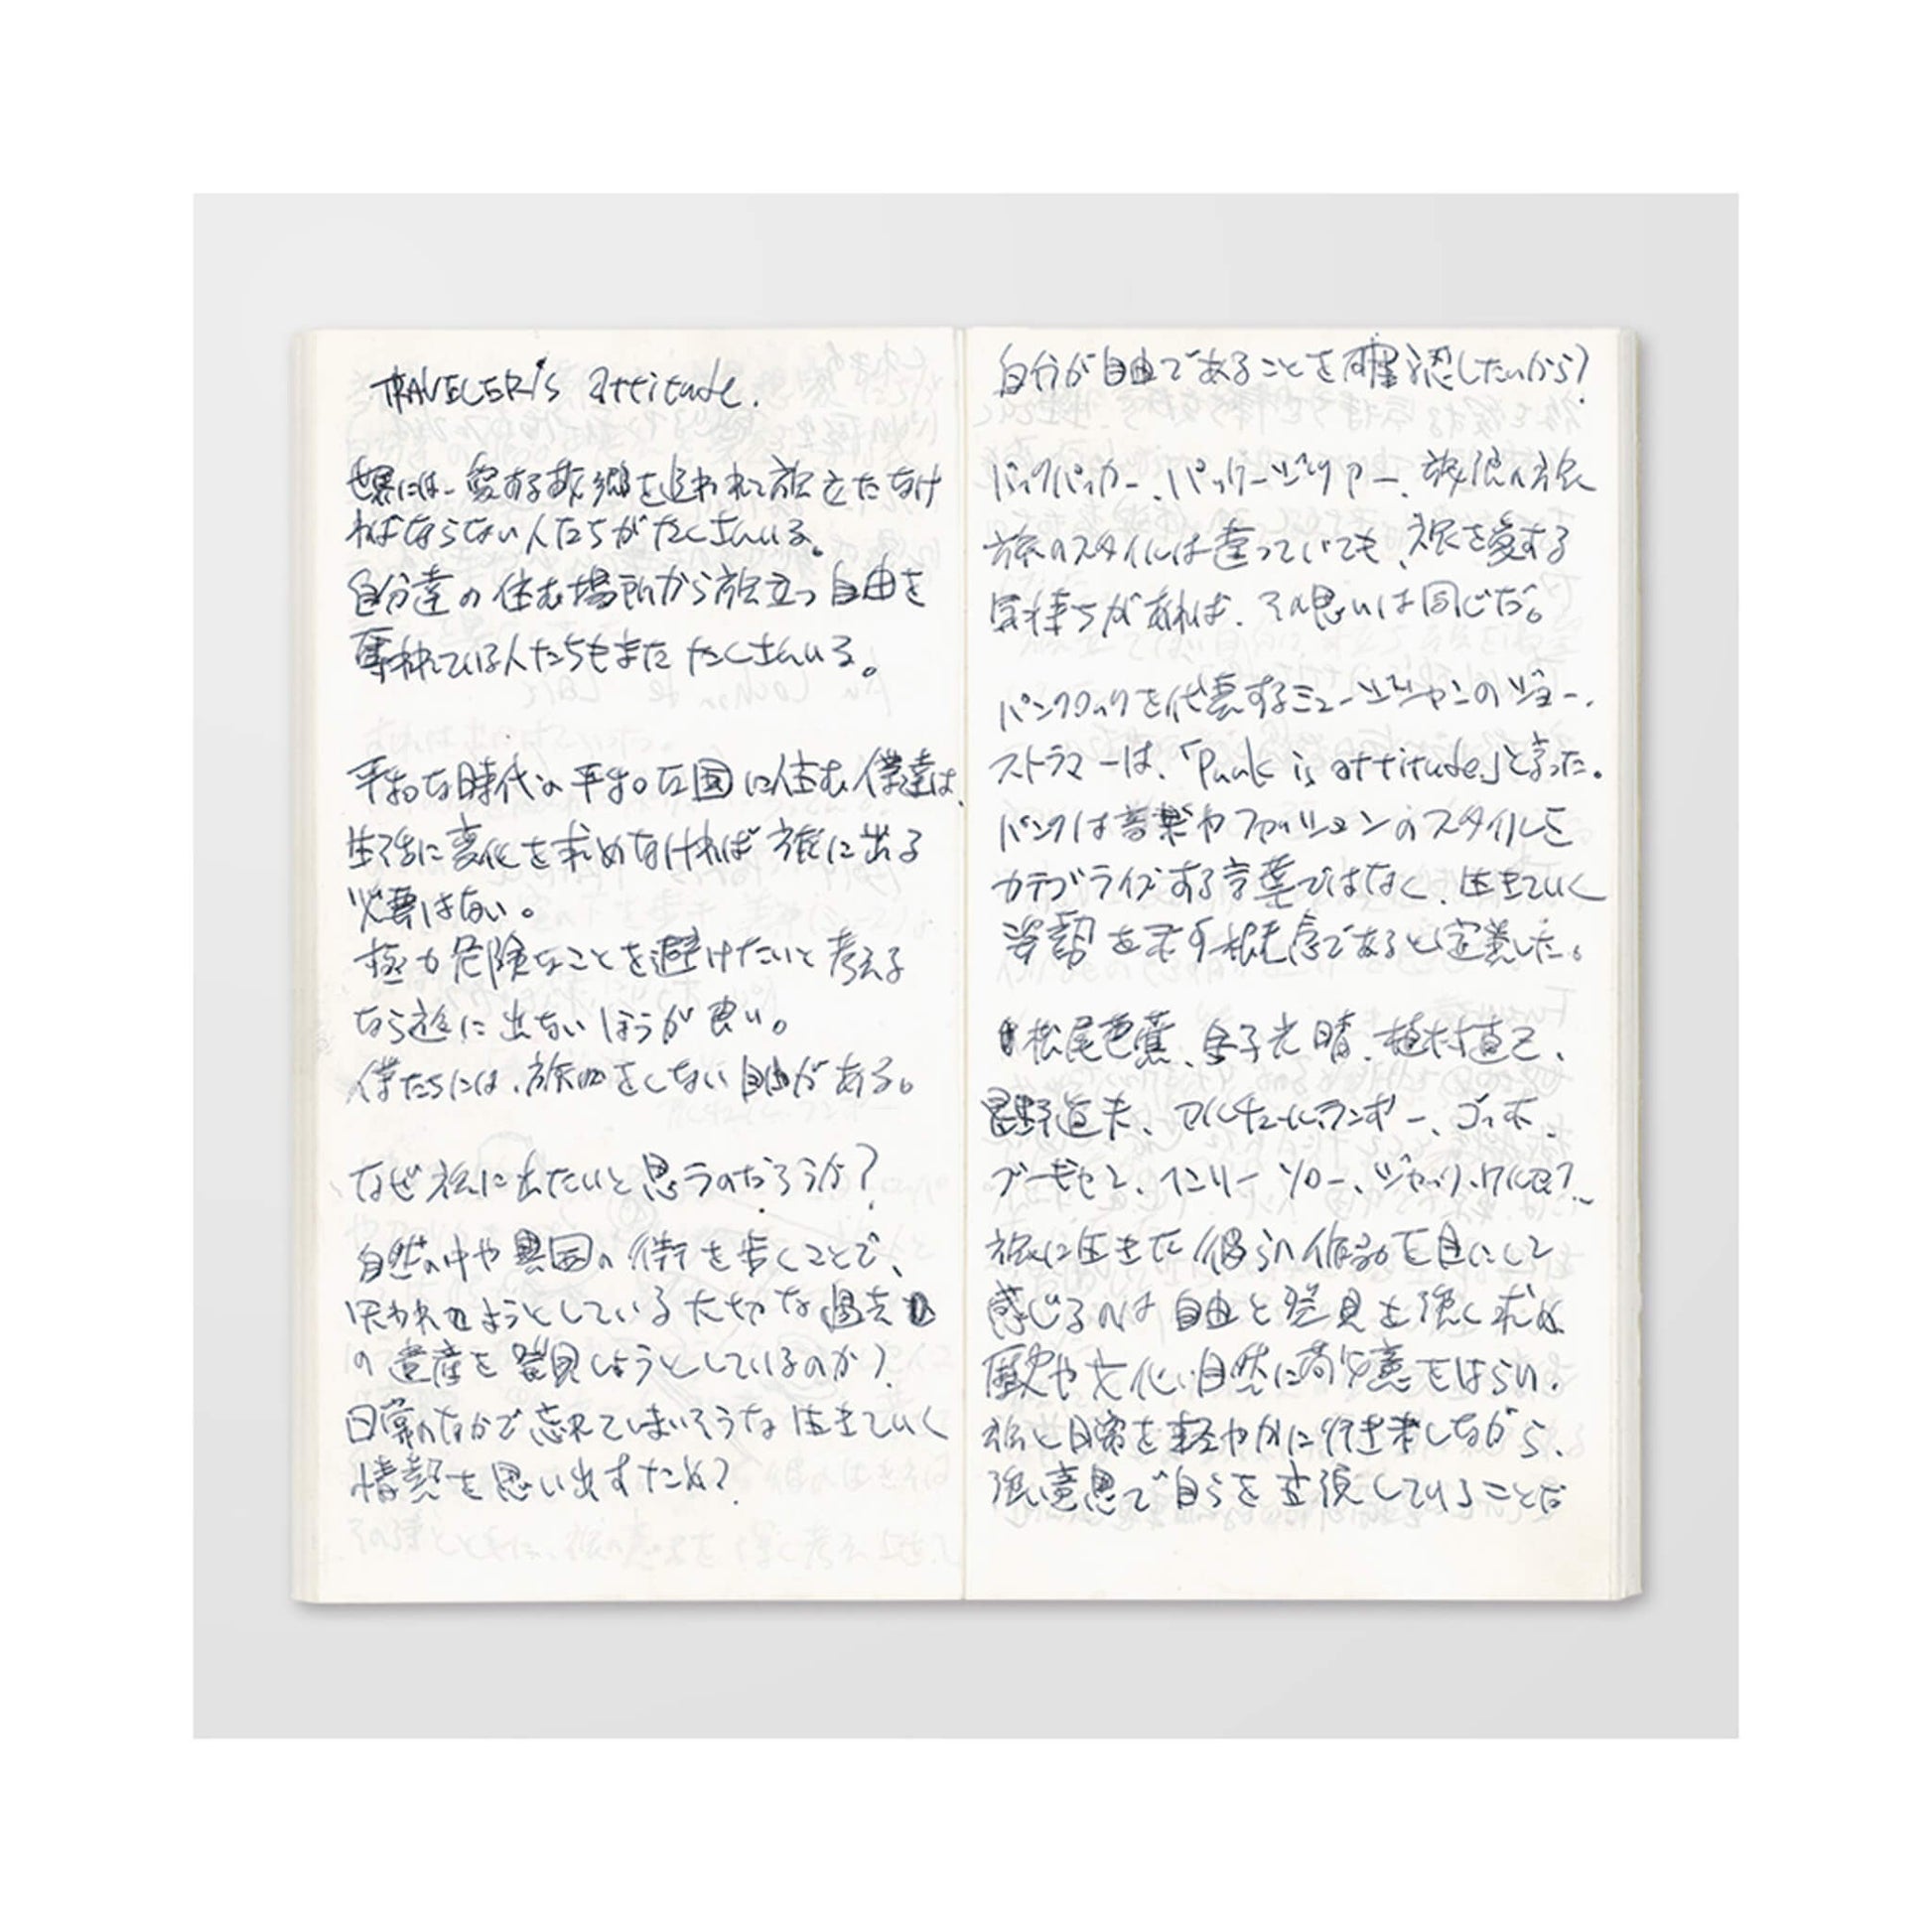 TRAVELER's attitude.
世界には、愛する故郷を追われて旅立たなけ
ればならない人たちがたくさんいる。
自分達の住む場所から旅立つ自由を
奪われている人たちもまたたくさんいる。
平和な時代の平和な国に住む僕達は、
生活に変化を求めなければ旅に出る
必要はない。
極力危険なことを避けたいと考える
なら旅に出ないほうが良い。
僕たちには、旅をしない自由がある。
なぜ旅に出たいと思うのだろうか?
自然の中や異国の街を歩くことで、
失われようとしている大切な過去
の遺産を発見しようとしているのか?
日常のなかで忘れてしまいそうな生きていく
情熱を思い出すため?
自分が自由であることを確認したいから?
バックパッカー、パッケージツアー、放浪の旅
旅のスタイルは違っていても、旅を愛する
気持ちがあれば、その思いは同じだ。
パンクロックを代表するミュージシャンのジョー・
ストラマーは、「Punk is attitude」と言った。
パンクは音楽やファッションのスタイルを
カテゴライズする言葉ではなく、生きていく
姿勢を示す概念であると定義した。
松尾芭蕉、金子光晴、植村直己、
星野道夫、アルチュール・ランボー、ゴッホ、
ゴーギャン、ヘンリー ソロー、ジャック・ケルアック、
旅に生きた彼らの作品を目にして
感じるのは自由と発見を強く求め
歴史や文化、自然に敬意をはらい、
旅と日常を軽やかに行き来しながら、
強い意思で自らを主張していることだ